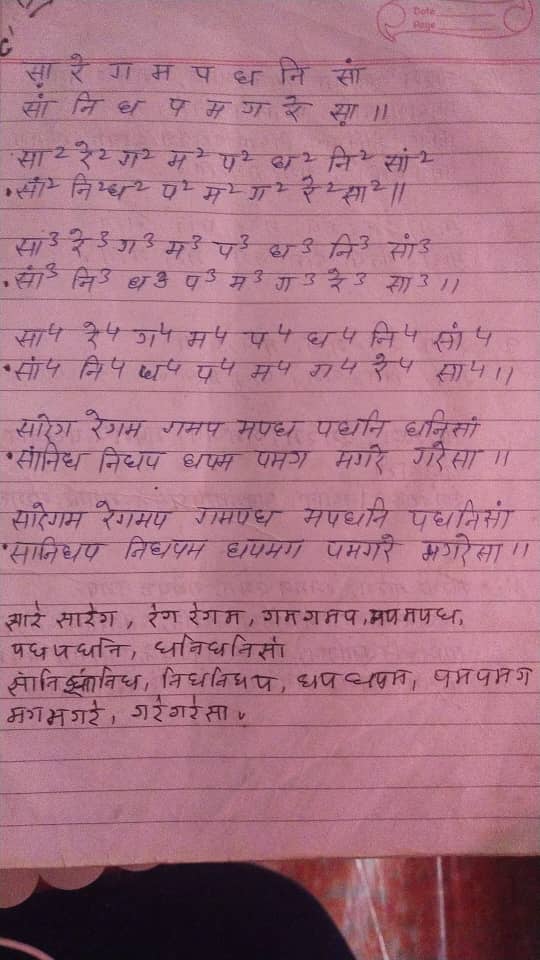 Date
Page
सा़ रे ग म प ध नि सां
सां नि ध प म ग रे सा़ ॥
सा² रे² ग² म² प² ध² नि² सां²
•सां² नि²ध² प² म² ग² रे²सा²॥
सा³ रे³ ग³ म³ प³ ध³ नि³ सां³
•सां³ नि³ ध³ प³ म³ ग³ रे³ सा³॥
सा⁴ रे⁴ ग⁴ म⁴ प⁴ ध⁴ नि⁴ सां⁴
•सां⁴ नि⁴ ध⁴ प⁴ म⁴ ग⁴ रे⁴ सा⁴॥
सारेग रेगम गमप मपध पधनि धनिसां
•सांनिध निधप धपम पमग मगरे गरेसा ॥
सारेगम रेगमप गमपध मपधनि पधनिसां
•सानिधप निधपम धपमग पमगरे मगरेसा॥
सारे सारेग, रेग रेगम, गमगमप, मपमपध,
पधपधनि, धनिधनिसां
सांनिसांनिध, निधनिधप, धपधपम, पमपमग
मगमगरे, गरेगरेसा.